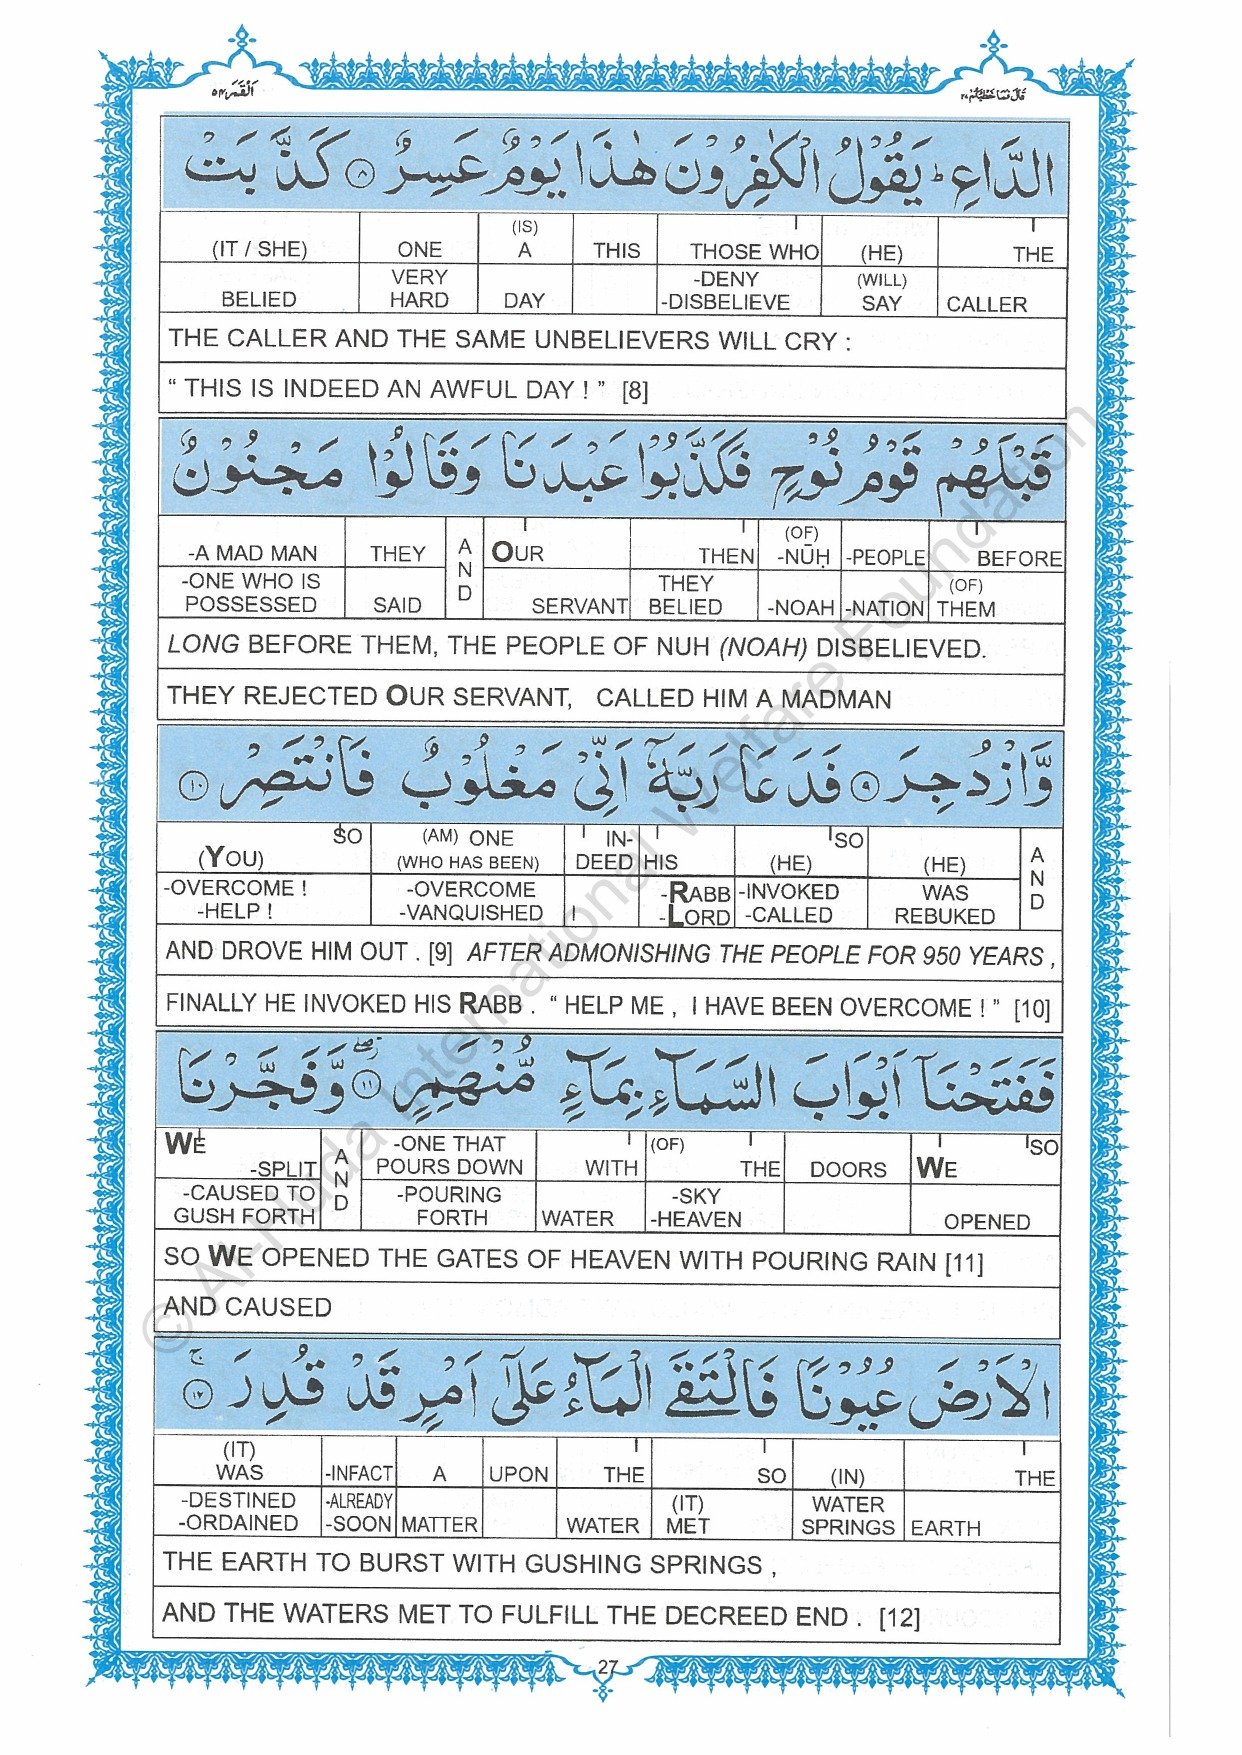 اَلْقَمَر ٥٤
قَالَ فَمَا خَطْبُكُمْ ٢٧
الدَّاعِ ؕ يَقُوْلُ الْكٰفِرُوْنَ هٰذَا يَوْمٌ عَسِرٌ ﴿٨﴾ كَذَّبَتْ
(IT / SHE) ONE (IS) A THIS THOSE WHO (HE) THE
BELIED VERY HARD DAY -DENY -DISBELIEVE (WILL) SAY CALLER
THE CALLER AND THE SAME UNBELIEVERS WILL CRY :
“ THIS IS INDEED AN AWFUL DAY ! ” [8]
قَبْلَهُمْ قَوْمُ نُوْحٍ فَكَذَّبُوْا عَبْدَنَا وَقَالُوْا مَجْنُوْنٌ
-A MAD MAN THEY AND OUR THEN (OF) -NŪḤ -PEOPLE BEFORE
-ONE WHO IS POSSESSED SAID SERVANT THEY BELIED -NOAH -NATION (OF) THEM
LONG BEFORE THEM, THE PEOPLE OF NUH (NOAH) DISBELIEVED.
THEY REJECTED OUR SERVANT, CALLED HIM A MADMAN
وَّازْدُجِرَ ﴿٩﴾ فَدَعَا رَبَّهٗۤ اَنِّىْ مَغْلُوْبٌ فَانْتَصِرْ ﴿١٠﴾
SO (YOU) (AM) ONE (WHO HAS BEEN) IN-DEED HIS SO (HE) (HE) AND
-OVERCOME ! -HELP ! -OVERCOME -VANQUISHED I -RABB -LORD -INVOKED -CALLED WAS REBUKED
AND DROVE HIM OUT . [9] AFTER ADMONISHING THE PEOPLE FOR 950 YEARS ,
FINALLY HE INVOKED HIS RABB . “ HELP ME , I HAVE BEEN OVERCOME ! ” [10]
فَفَتَحْنَاۤ اَبْوَابَ السَّمَآءِ بِمَآءٍ مُّنْهَمِرٍ ﴿١١﴾ وَّفَجَّرْنَا
WE -SPLIT AND -ONE THAT POURS DOWN WITH (OF) THE DOORS WE SO
-CAUSED TO GUSH FORTH -POURING FORTH WATER -SKY -HEAVEN OPENED
SO WE OPENED THE GATES OF HEAVEN WITH POURING RAIN [11]
AND CAUSED
الْاَرْضَ عُيُوْنًا فَالْتَقَى الْمَآءُ عَلٰٓى اَمْرٍ قَدْ قُدِرَ ﴿١٢﴾ ۚ
(IT) WAS -INFACT A UPON THE SO (IN) THE
-DESTINED -ORDAINED -ALREADY -SOON MATTER WATER (IT) MET WATER SPRINGS EARTH
THE EARTH TO BURST WITH GUSHING SPRINGS ,
AND THE WATERS MET TO FULFILL THE DECREED END . [12]
27
© Al-Huda International Welfare Foundation